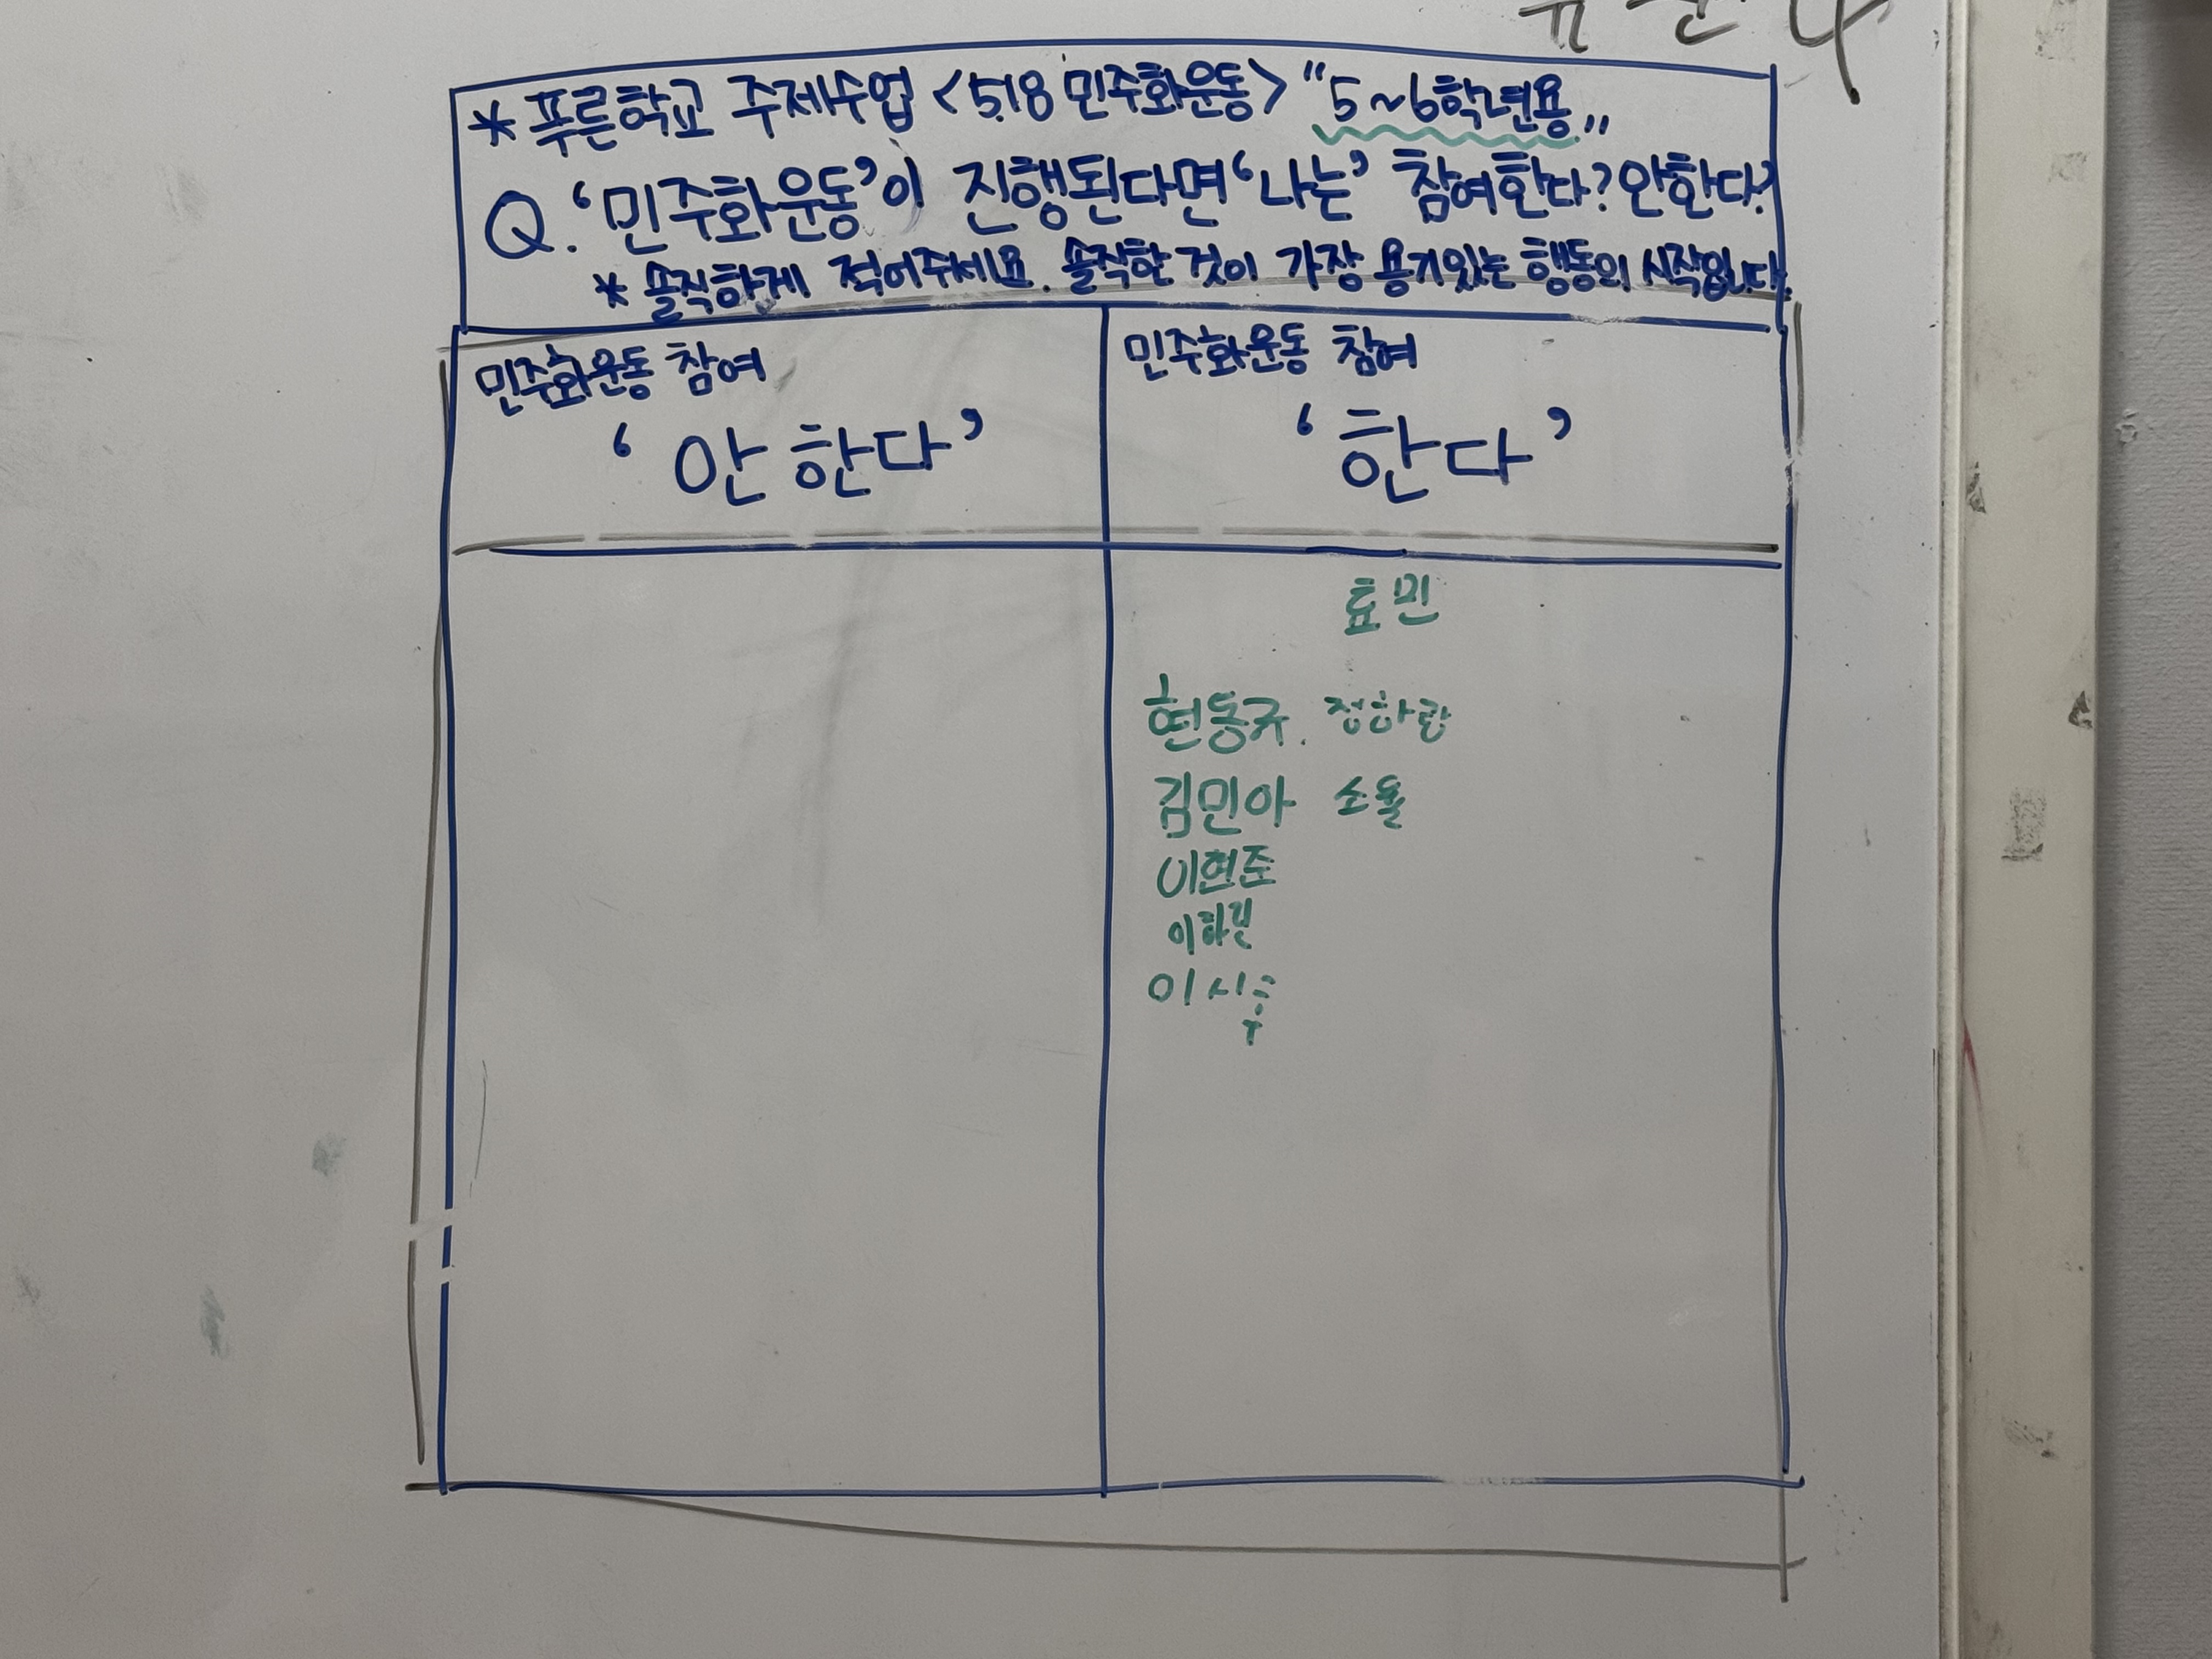 * 푸른학교 주제수업 <5.18 민주화운동> "5~6학년용"
Q. '민주화운동'이 진행된다면 '나는' 참여한다? 안한다?
* 솔직하게 적어주세요. 솔직한 것이 가장 용기있는 행동의 시작입니다.
민주화운동 참여
'안 한다'
민주화운동 참여
'한다'
효민
현동규. 정하랑
김민아 소율
이현준
이하린
이시후